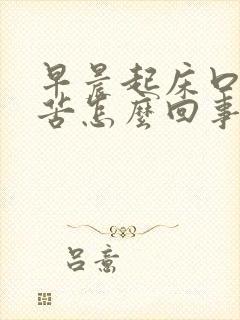 早晨起床口
苦怎麽回事
吕意